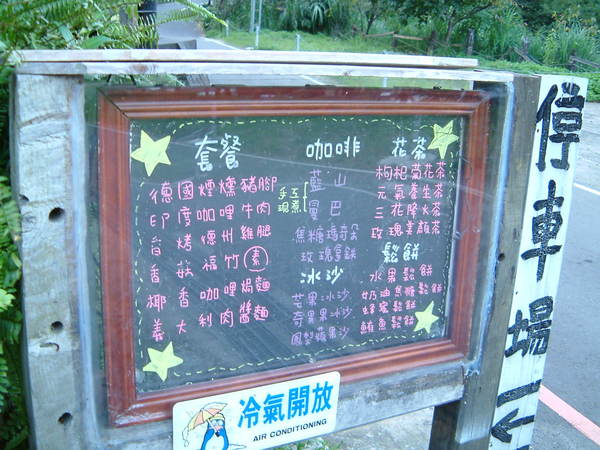 套餐
德國煙燻豬腳
印度咖哩牛肉
香烤德州雞腿
香菇福竹素
椰香咖哩焗麵
義大利肉醬麵
咖啡
手工現煮
藍山
曼巴
焦糖瑪奇朵
玫瑰拿鐵
冰沙
芒果冰沙
奇異果冰沙
鳳梨蘋果沙
花茶
枸杞菊花茶
元氣養生茶
三花降火茶
玫瑰美顏茶
鬆餅
水果鬆餅
奶油焦糖鬆餅
蜂蜜鬆餅
鮪魚鬆餅
冷氣開放
AIR CONDITIONING
停車場